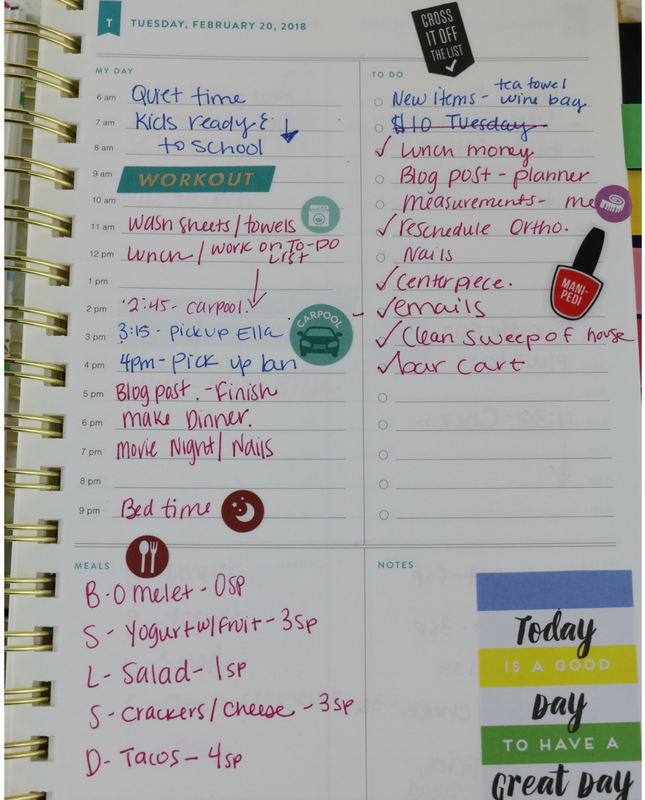 T TUESDAY, FEBRUARY 20, 2018
CROSS
IT OFF
THE LIST
MY DAY
6 am Quiet time
7 am Kids ready &
8 am to school
9 am WORKOUT
10 am
11 am Wash sheets/towels
12 pm Lunch / work on To-Do
List
1 pm
2 pm 2:45 - carpool.
CARPOOL
3 pm 3:15 - pickup Ella
4 pm 4pm - Pick up Ian
5 pm Blog post. - Finish
6 pm make Dinner.
7 pm Movie Night / Nails
8 pm
9 pm Bed time
TO DO
tea towel
New Items - wine bag
$10 Tuesday
Lunch money
Blog post - planner
measurements - me
reschedule Ortho.
Nails
centerpiece.
MANI-
PEDI
- emails
Clean sweep of house
bar cart
MEALS
B - Omelet - 0sp
S - Yogurt w/fruit - 3sp
L - Salad - 1sp
S - Crackers / Cheese - 3sp
D - Tacos - 4sp
NOTES
Today
IS A GOOD
DAY
TO HAVE A
Great DAY